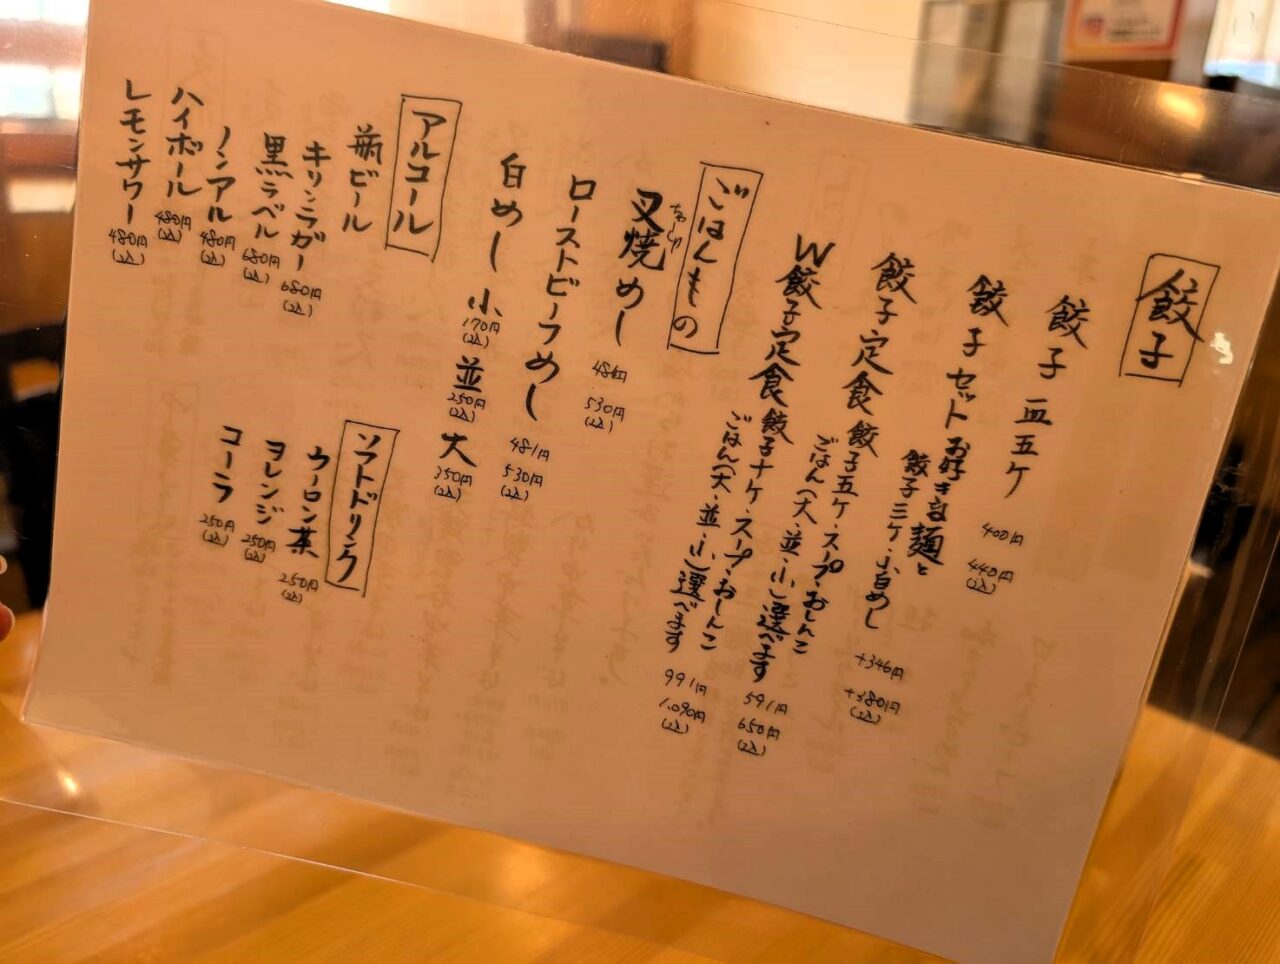 餃子
餃子 一皿五ケ 400円 440円(込)
餃子セット お好きな麺と
餃子三ケ・小白めし +346円 +380円(込)
餃子定食 餃子五ケ・スープ・おしんこ
ごはん(大・並・小)選べます 591円 650円(込)
W餃子定食 餃子十ケ・スープ・おしんこ
ごはん(大・並・小)選べます 991円 1,090円(込)
ごはんもの
叉焼めし 486円 530円(込)
ちゃーしゅー
ローストビーフめし 481円 530円(込)
白めし 小 170円(込) 並 250円(込) 大 350円(込)
アルコール
瓶ビール
キリンラガー 680円(込)
黒ラベル 680円(込)
ノンアル 480円(込)
ハイボール 480円(込)
レモンサワー 480円(込)
ソフトドリンク
ウーロン茶 250円(込)
オレンジ 250円(込)
コーラ 250円(込)